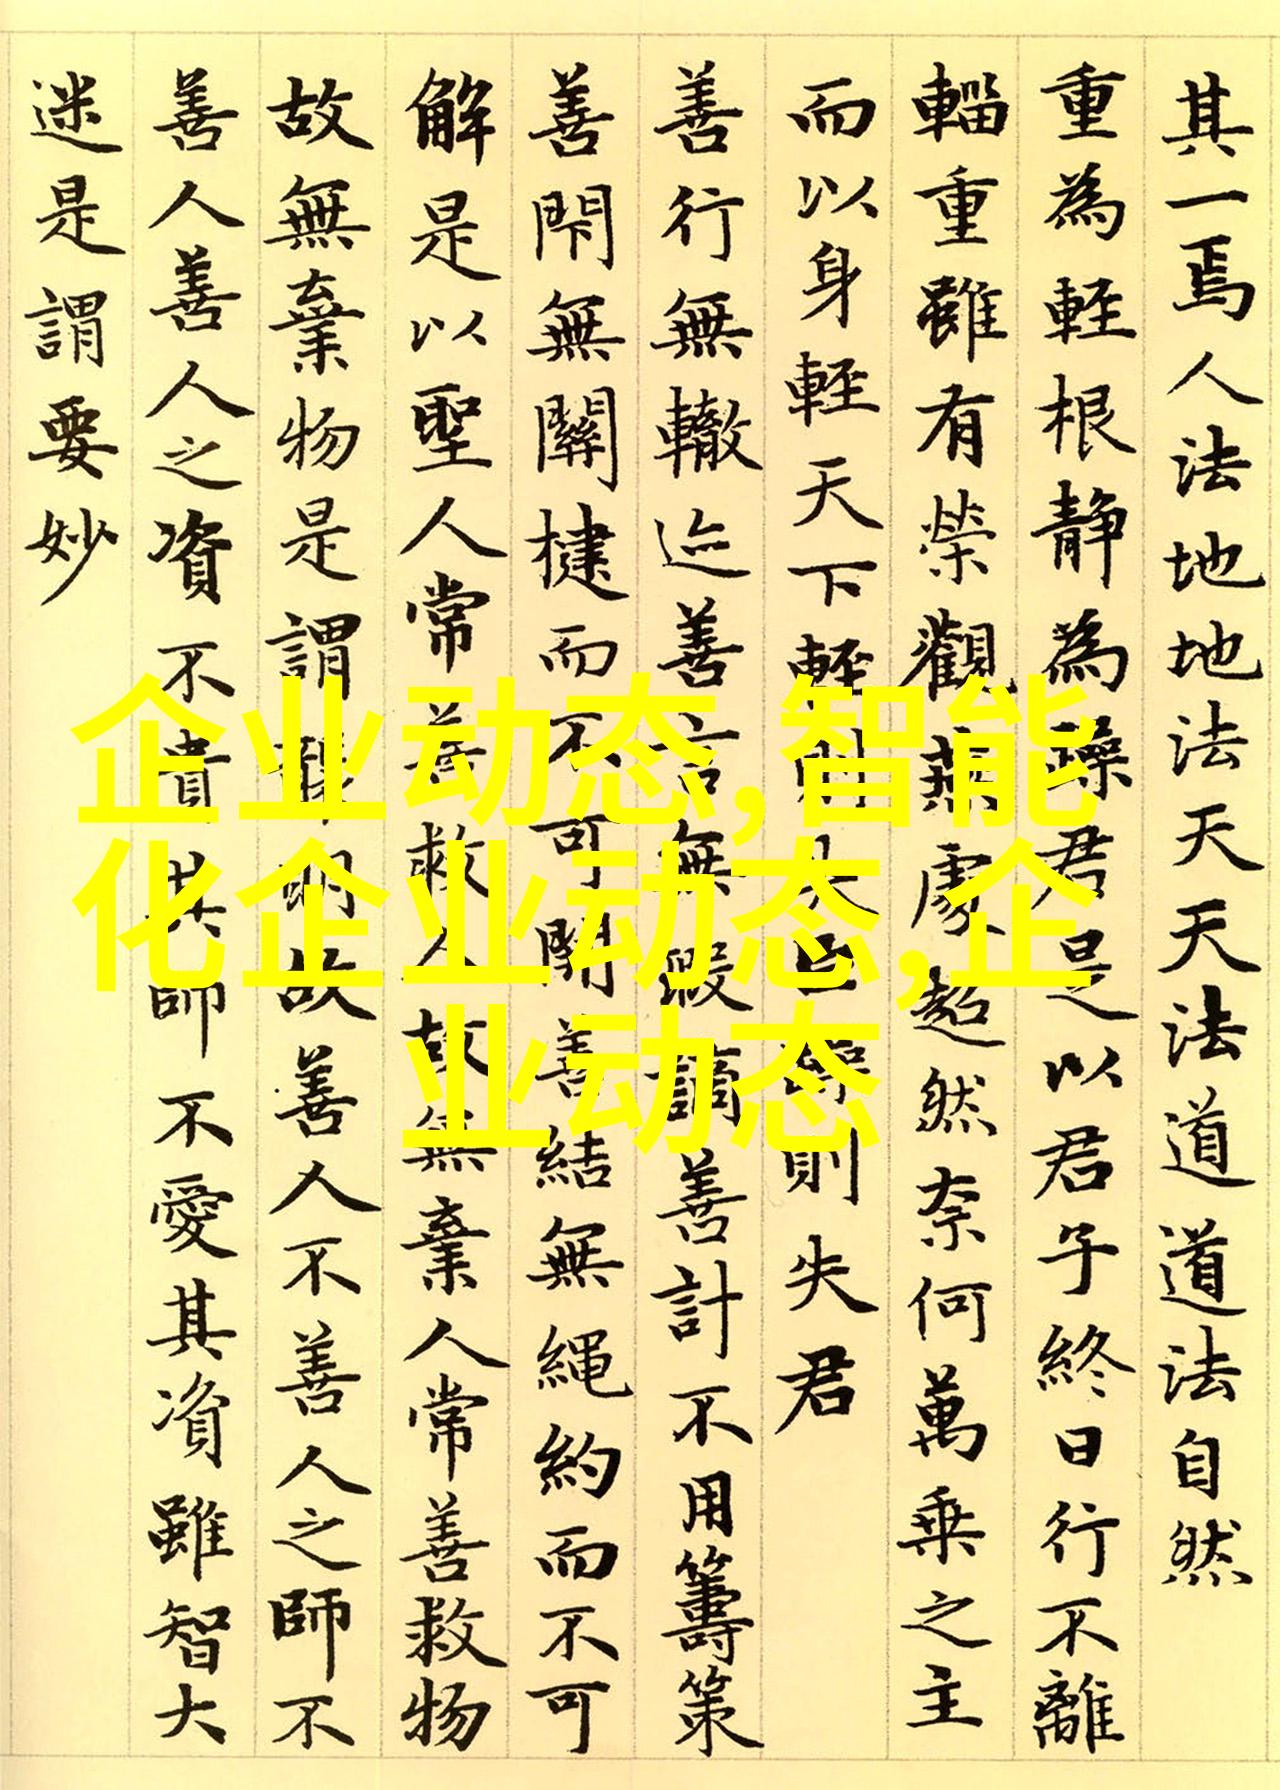 其一焉人法地地法天天法道道法自然
重為輕根靜為躁君是以君子終日行不離
輜重雖有榮觀燕處超然奈何萬乘之主
而以身輕天下輕則失臣躁則失君
善行無轍迹善言無瑕謫善計不用籌策
善閇無關楗而不可開善結無繩約而不可
解是以聖人常善救人故無棄人常善救物
故無棄物是謂襲明故善人不善人之師不
善人善人之資不貴其師不愛其資雖智大
迷是謂要妙
企业动态,智能
化企业动态,企
业动态